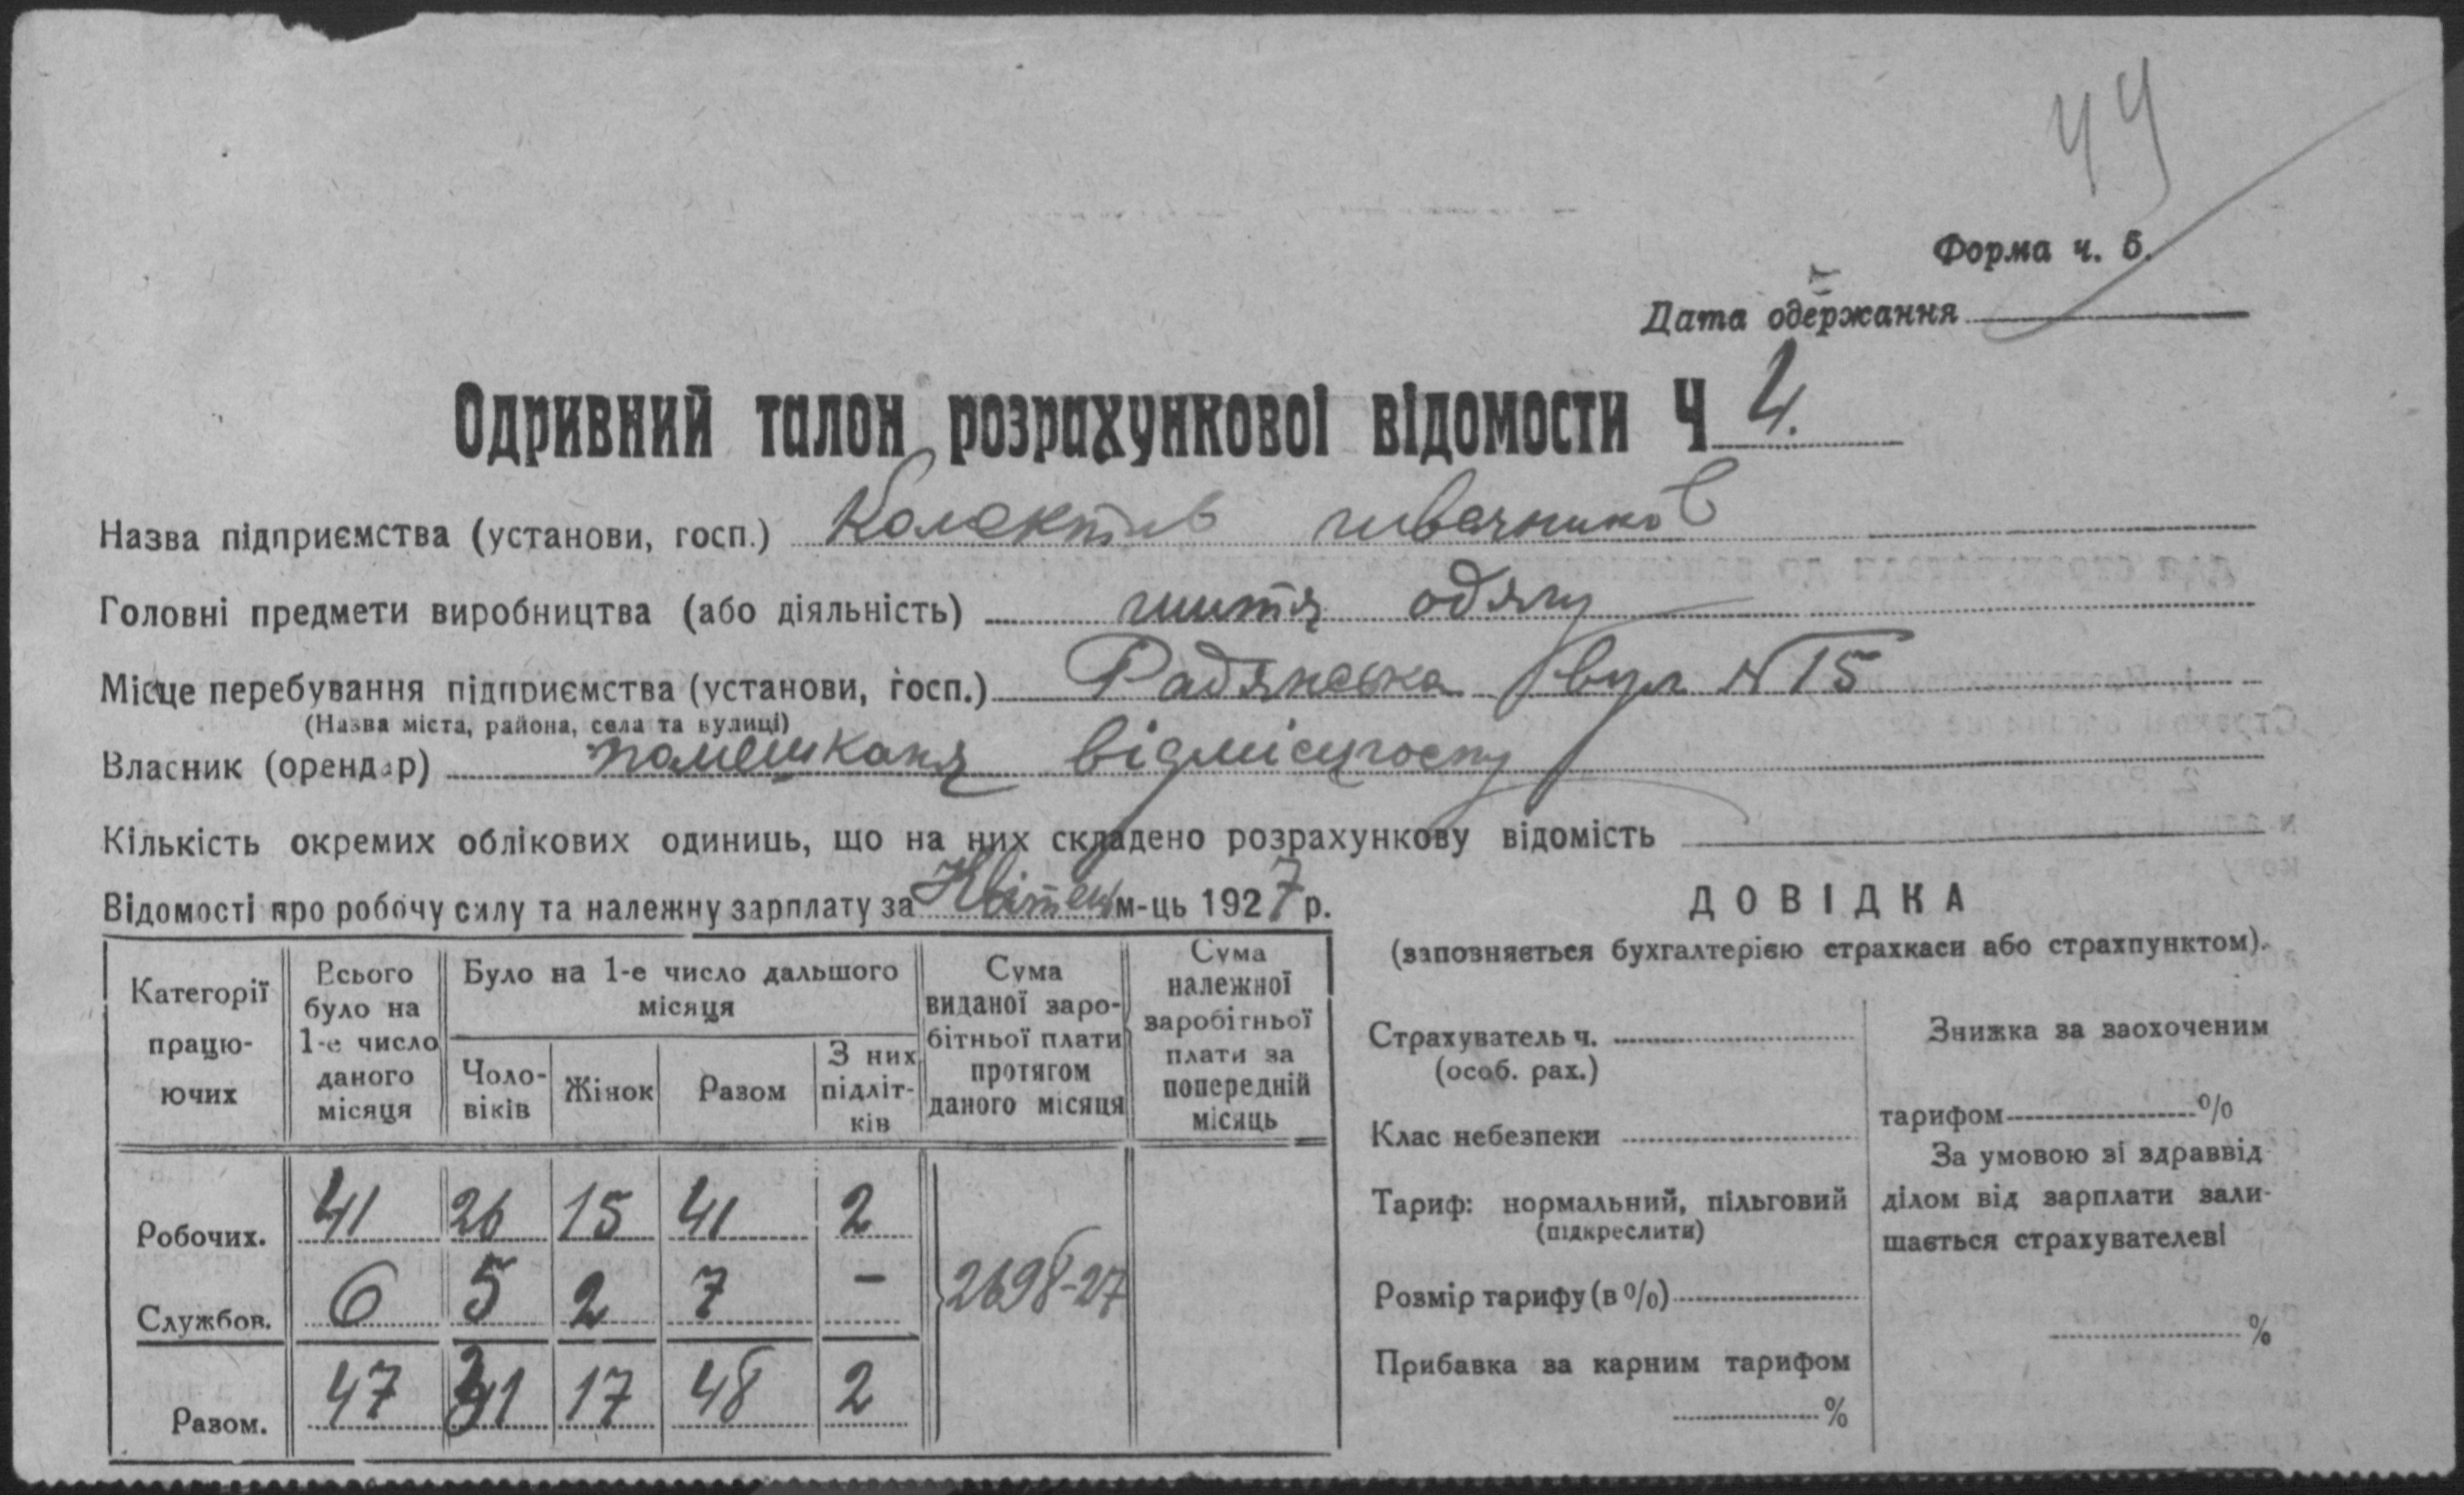 44
Форма ч. 5.
Дата одержання
Одривний талон розрахункової відомости Ч 4.
Назва підприємства (установи, госп.) Колектив швачников
Головні предмети виробництва (або діяльність) шиття одягу
Місце перебування підприємства (установи, госп.) Радянська вул N 15
(Назва міста, района, села та вулиці)
Власник (орендар) помешканя відмісцгоспу
Кількість окремих облікових одиниць, що на них складено розрахункову відомість
Відомості про робочу силу та належну зарплату за Квітень м-ць 1927 р.
Категорії працю-ючих
Всього було на 1-е число даного місяця
Було на 1-е число дальшого місяця
Чоло-віків
Жінок
Разом
З них підліт-ків
Сума виданої заро-бітньої плати протягом даного місяця
Сума належної заробітньої плати за попередній місяць
Робочих. 41 26 15 41 2
Службов. 6 5 2 7 - 2698-27
Разом. 47 31 17 48 2
ДОВІДКА
(заповняється бухгалтерією страхкаси або страхпунктом).
Страхуватель ч.
(особ. рах.)
Клас небезпеки
Тариф: нормальний, пільговий
(підкреслити)
Розмір тарифу (в %)
Прибавка за карним тарифом
%
Знижка за заохоченим
тарифом %
За умовою зі здраввід
ділом від зарплати зали-
щається страхувателеві
%